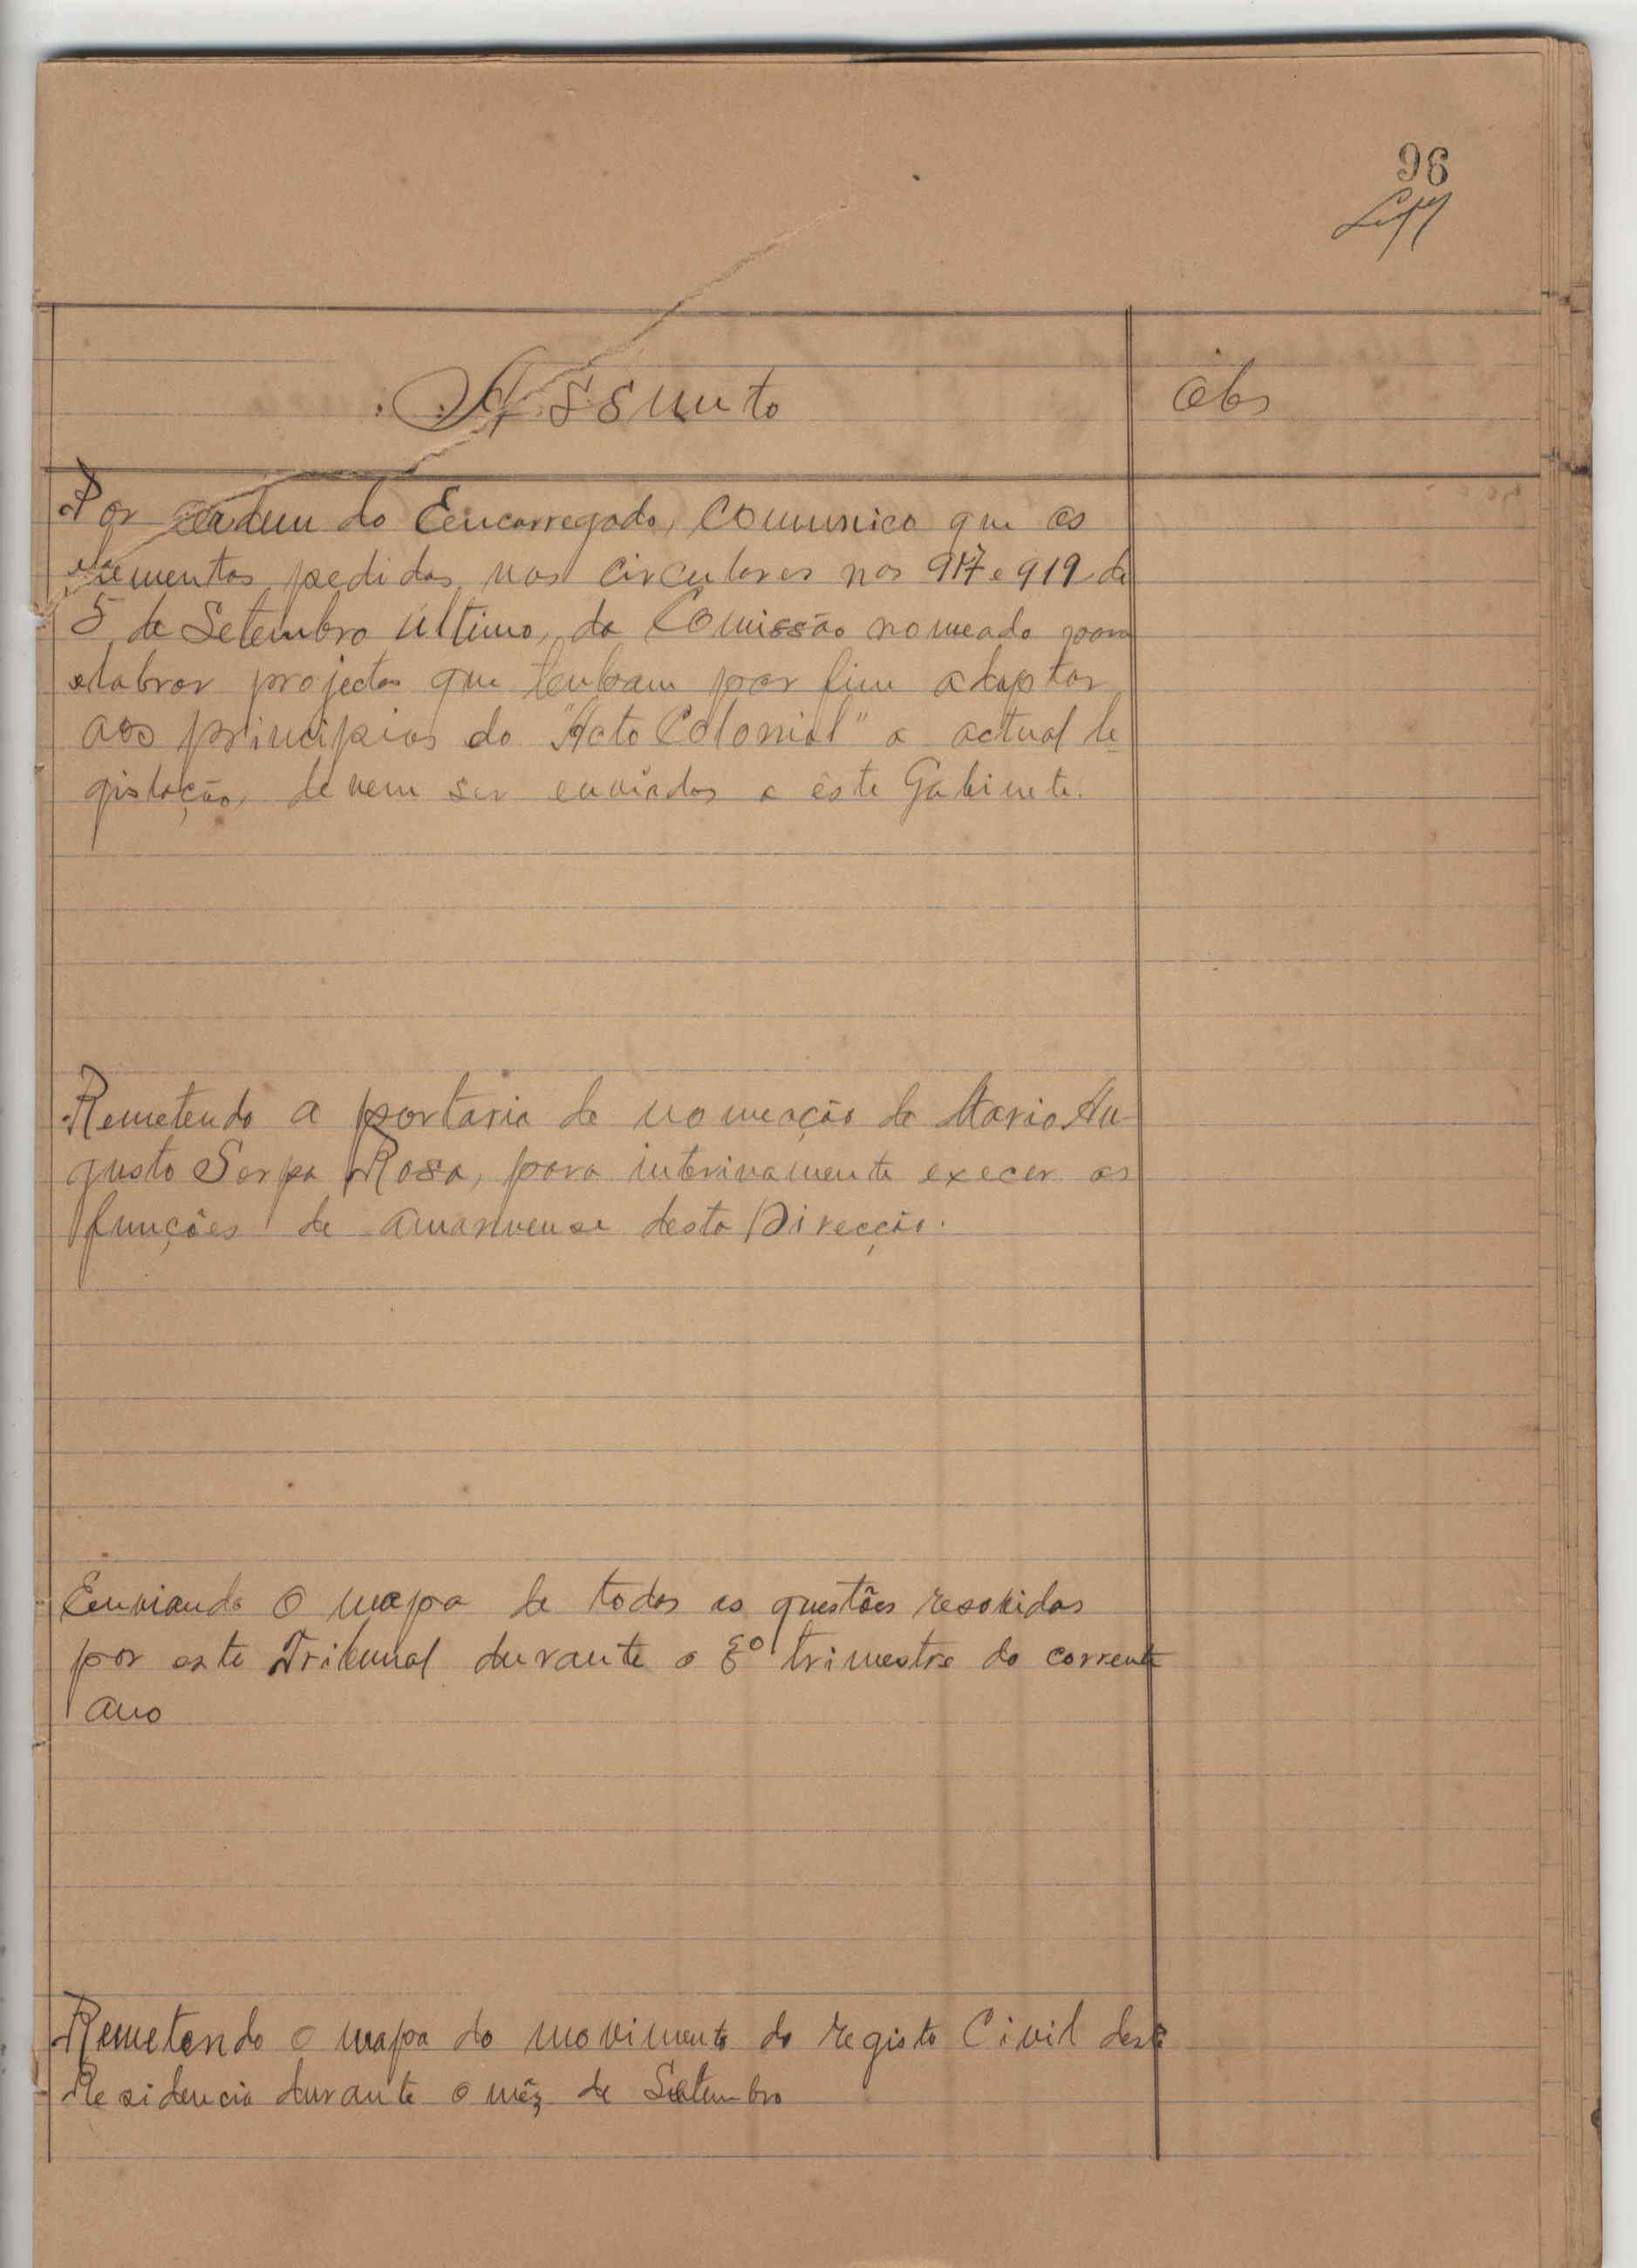 96
Assunto
Obs
Por ordem do Encarregado, comunico que os
elementos pedidos nas circulares nos 917 e 919 de
5 de Setembro último, da Comissão nomeada para
elabrar projectos que tenham por fim adaptar
aos principios do "Acto Colonial" a actual le
gislação, devem ser enviados a êste Gabinete.
Remetendo a portaria de nomeação de Mario Au-
gusto Serpa Rosa, para interinamente execer as
funções de amanuense desta Direcção.
Enviando o mapa de todas as questões resolvidas
por este Tribunal durante o 3º trimestre do corrente
ano
Remetendo o mapa do movimento do registo Civil desta
Residencia durante o mês de Setembro